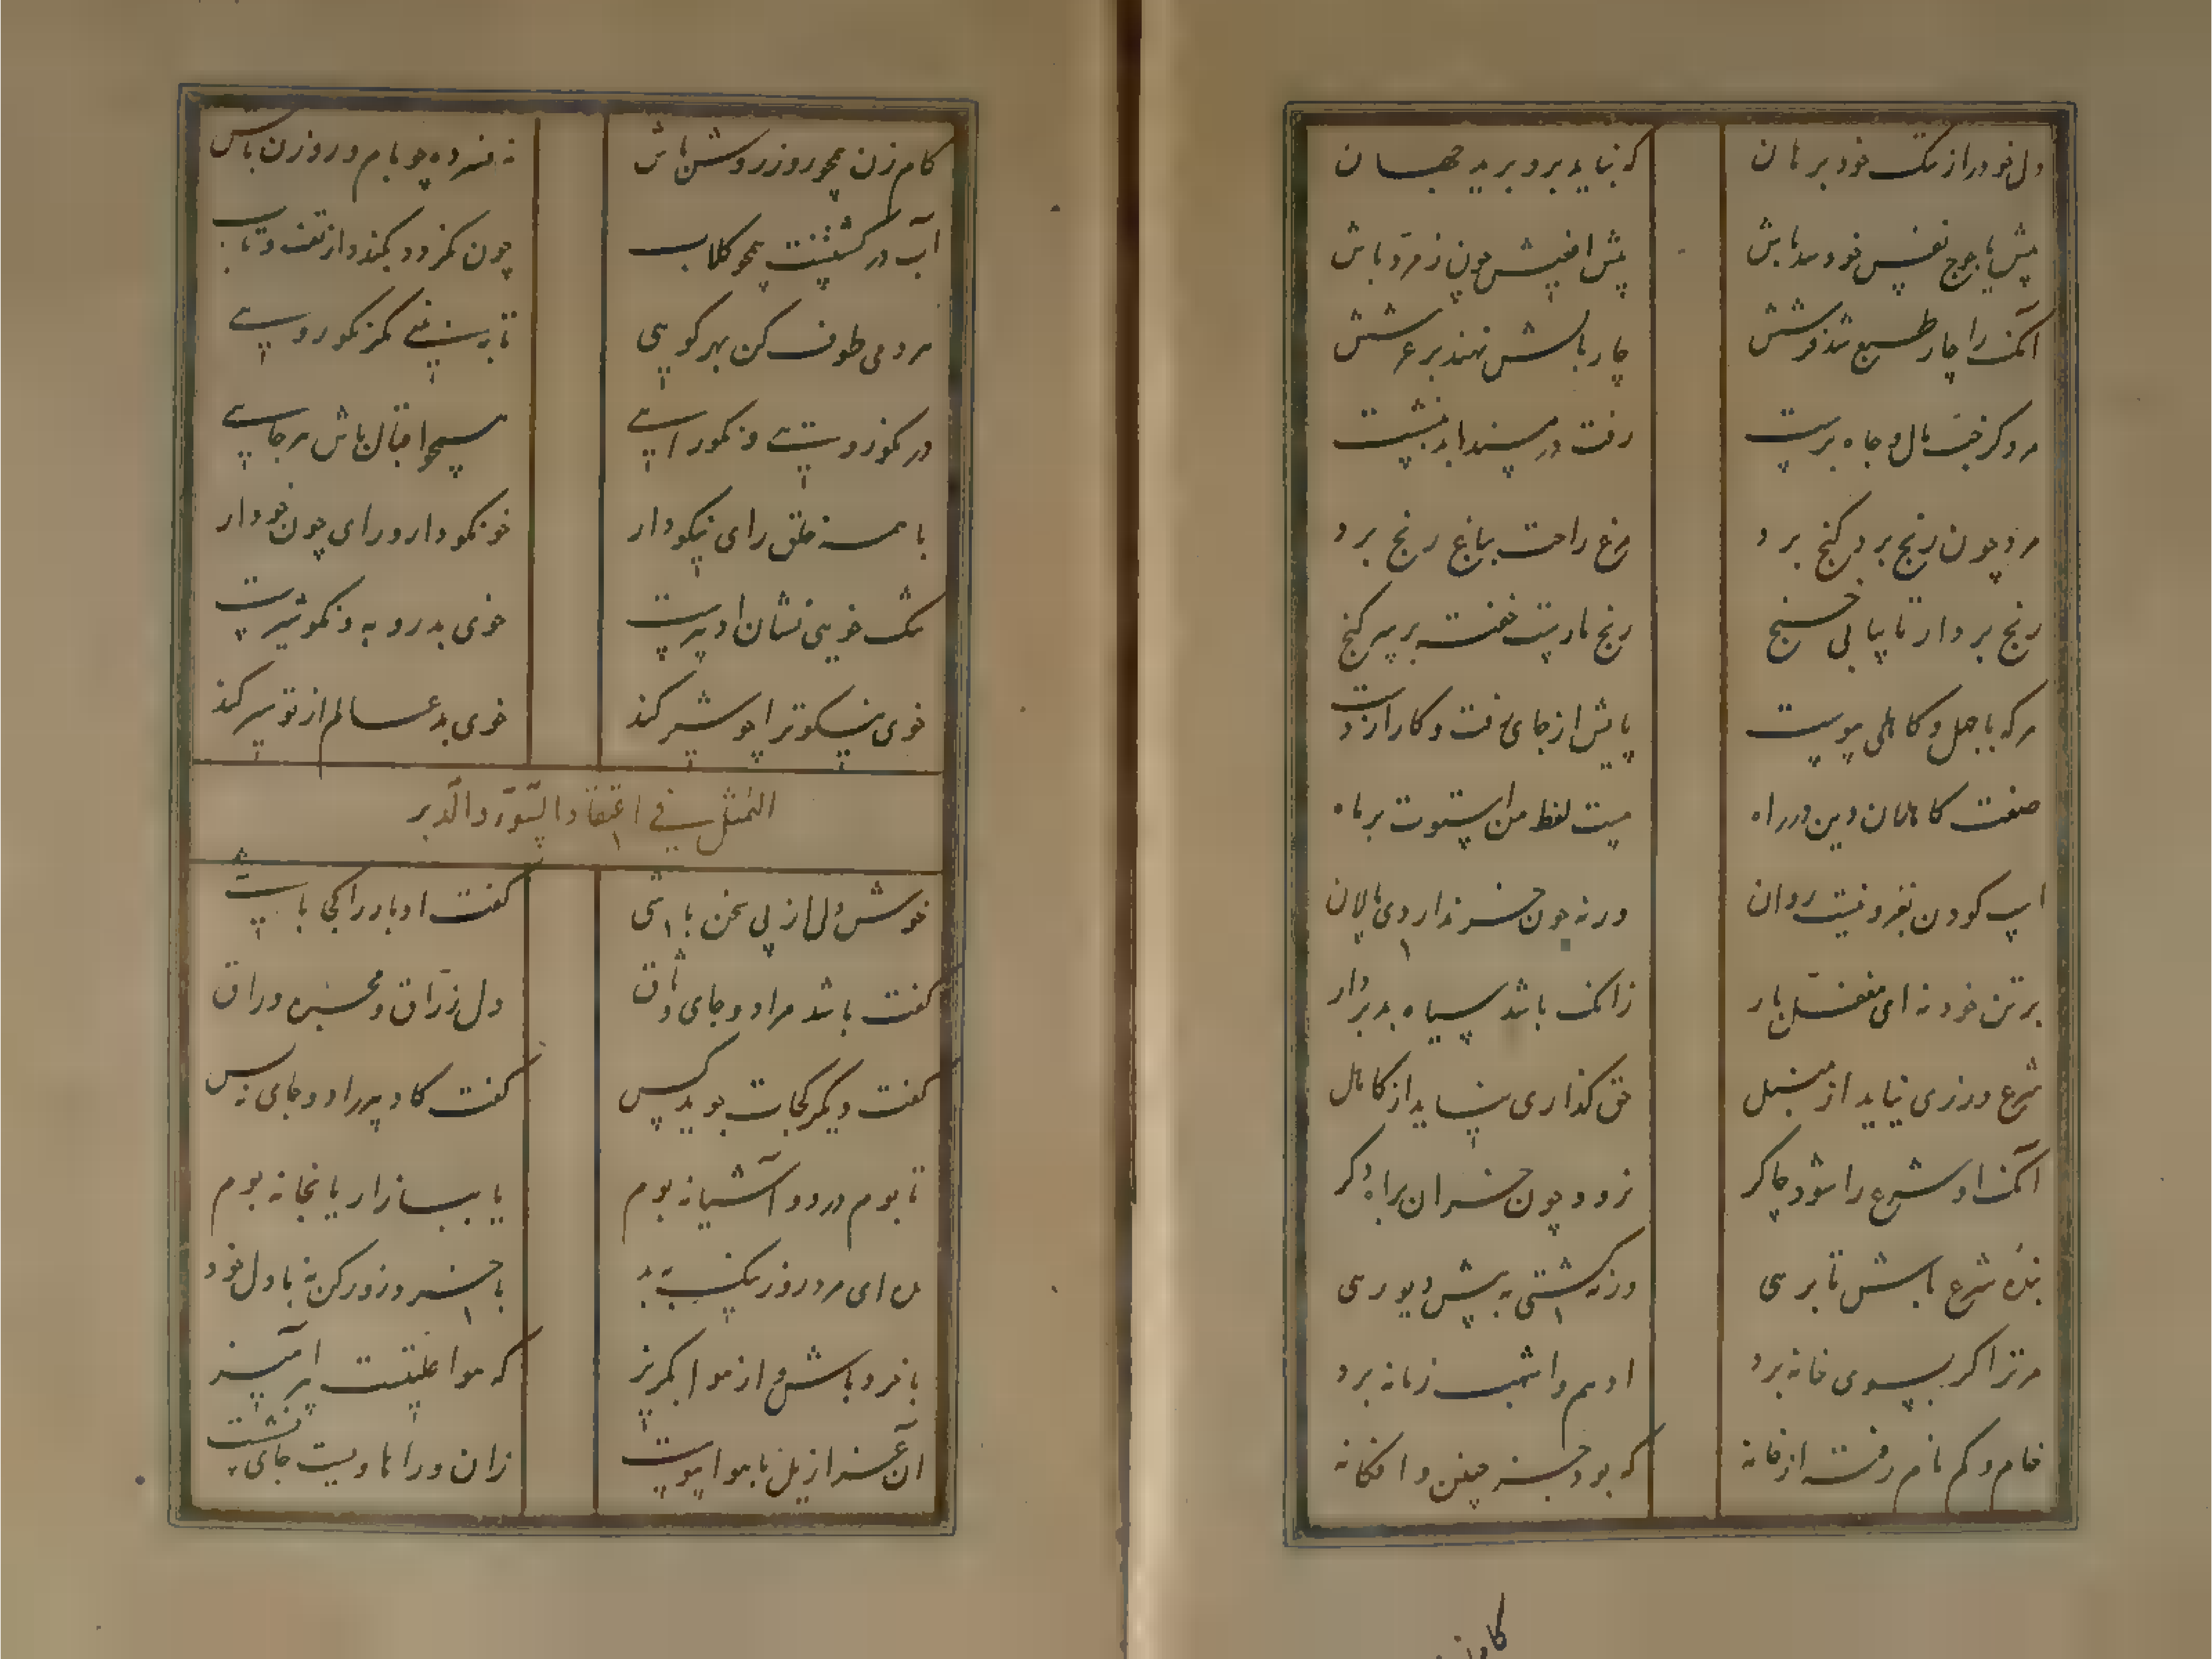 دل خود را ز ننک خود برهان که نیاید برو برید جهان
پیش یاجوج نفس خود سد باش پیش افعیش چون زمرد باش
آنک را چار طبع شد فرشش چار بالش نهند بر عرشش
مرد کز خیف مال و جاه برست رفت در مسند ابد بنشست
مرد چون رنج برد کنج برد مرغ راحت بباغ رنج برد
رنج بردار تا بیابی کنج رنج مارست خفته بر سر کنج
هرکه با جهل و کاهلی پیوست پایش از جای رفت و کار از دست
صفت کاهلان دین در راه هست لفظ من استوت برماه
اسب کودن بغزو نیست روان ورنه چون خر ندار دی پالان
بر تن خود نه ای مغفل بار زانک باشد سیاه بد بردار
شرع ورزی نیاید از منبل حق کذاری نیاید از کاهل
آنک او شرع را شود چاکر نرود چون خران براه دکر
بنده شرع باش تا برسی ورنه کشتی به پیش دیو رسی
مر ترا کر بسوی خانه برد ادهم و اشهب زمانه برد
خام و کم نام رفته از خانه که بود جز جنین و افکانه
کام زن همچو روز روشن باش نه فسرده چو بام و روزن باش
آب در کشتنست همچو کلاب چون نکردد بکندد از تف و تاب
مردمی طوف کن بهر کویی تا ببینی مکر نکو رویی
در نکو رویی و نکو رایی همچو اقبال باش هر جایی
با همه خلق رای نیکو دار خو نکو دار و رای چون خو دار
سک خویی نشان ادبیرست خوی بد روبه و نکو شیرست
خوی نیکو ترا چو شیر کند خوی بد عالم از تو سیر کند
التمثل فی اعتقاد السوء و الدبر
خوش دلی از پی سخن باشی کفت ادبار را کجا باشی
کفت باشد مرا دو جای وثاق دل زراق و محبره وراق
کفت دیکر کجات جوید کس کفت کاوه مرا دو جای نه بس
تا بوم در دو آشیانه بوم یا ببازار یا بخانه بوم
هان ای مرد روز نیک به بد با خسر و زور کن نه با دل خود
با خرد باش و از هوا بکریز که هوا علتیست پر آمیز
آن عزازیل با هوا پیوست زان ورا هاویه ست جای نشست